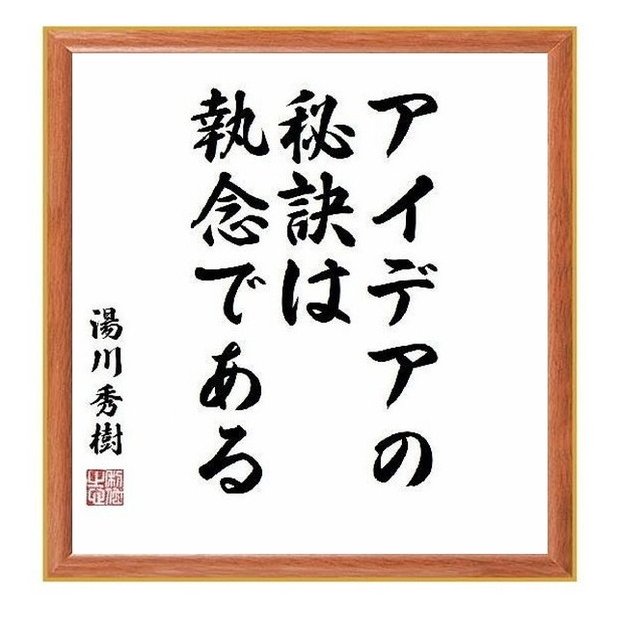 アイデアの
秘訣は
執念である
湯川秀樹